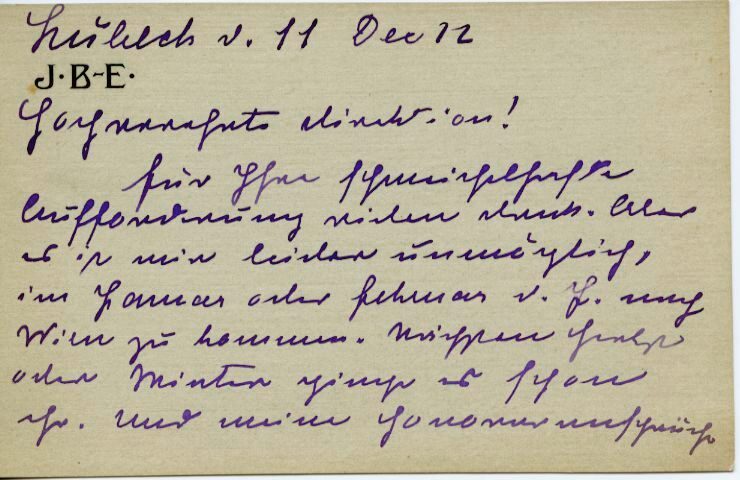 Lübeck d. 11 Dec 12
J·B-E·
Hochverehrte Direktion!
Für Ihre schmeichelhafte
Aufforderung vielen Dank. Aber
es ist mir leider unmöglich,
im Januar oder Februar n. J. nach
Wien zu kommen. Nächsten Herbst
oder Winter ginge es schon
eher. Und meine Honoraransprüche